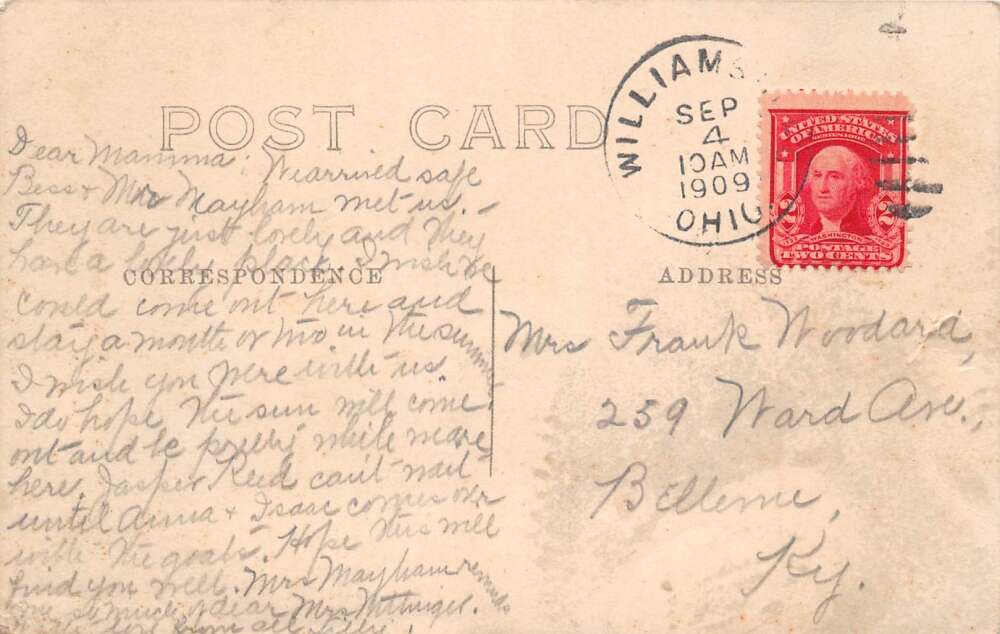 POST CARD
WILLIAMS
SEP
4
10AM
1909
OHIO.
UNITED STATES
OF AMERICA
SERIES 1902
2 2
WASHINGTON
POSTAGE
TWO CENTS
CORRESPONDENCE
ADDRESS
Dear Mamma: We arrived safe
Bess & Mr Mayham met us. -
They are just lovely and they
have a lovely place. I wish we
could come out here and
stay a month or two in the summer
I wish you were with us.
I do hope the sun will come
out and be pretty while we are
here. Jasper Reed can't wait
until Anna & Isaac comes over
with the goats. Hope this will
find you well. Mrs Mayham reminds
me so much of dear Mrs
from all
Mrs Frank Woodard,
259 Ward Ave.,
Bellevue,
Ky.